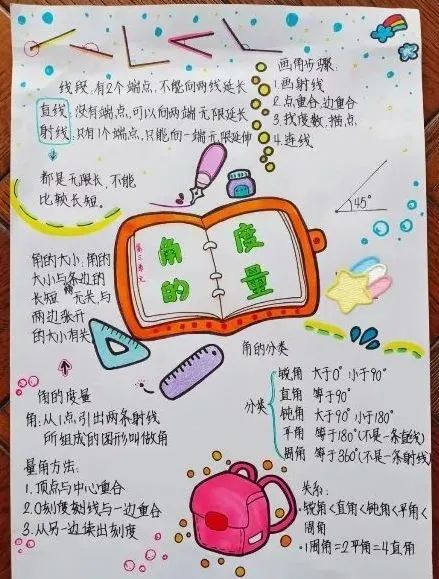 线段:有2个端点,不能向两线延长
直线:没有端点,可以向两端无限延长
射线:只有1个端点,只能向一端无限延伸
都是无限长,不能
比较长短。
画角步骤:
1.画射线
2.点重合,边重合
3.找度数,描点
4.连线
45°
第三单元
角的
度量
角的大小:角的
大小与条边的
长短无关,与
两边张开
的大小有关
角的度量
角:从1点,引出两条射线
所组成的图形叫做角
量角方法:
1.顶点与中心重合
2.0刻度线与一边重合
3.从另一边读出刻度
角的分类
分类
锐角 大于0° 小于90°
直角 等于90°
钝角 大于90° 小于180°
平角 等于180°(不是一条直线)
周角 等于360°(不是一条射线)
关系:
·锐角<直角<钝角<平角<
周角
·1周角=2平角=4直角